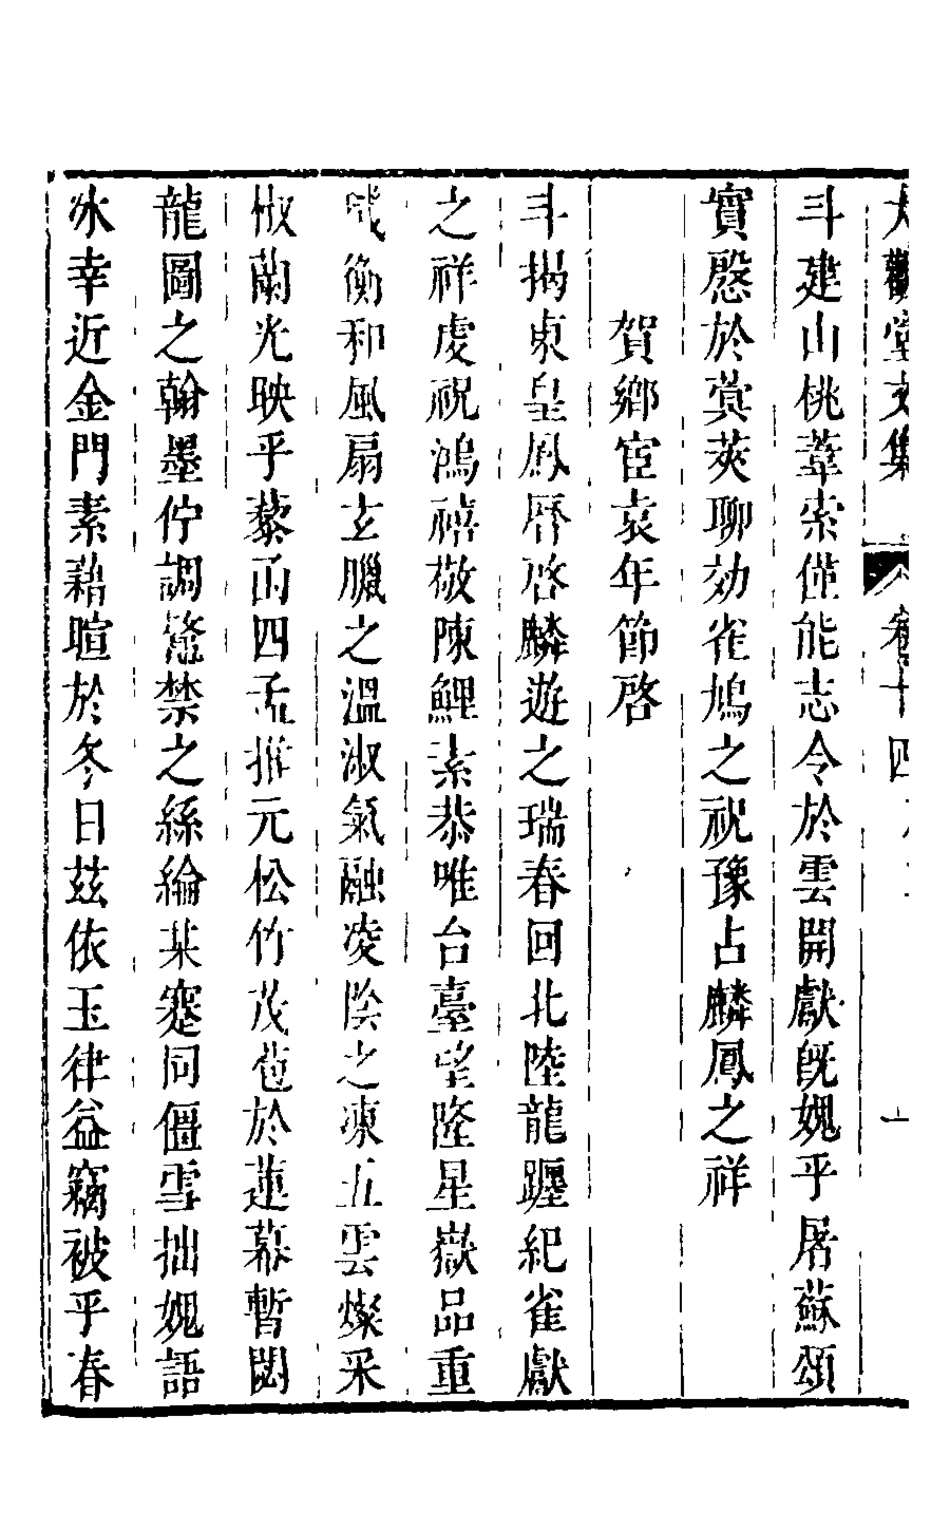 大觀堂文集 卷十四
斗建山桃葦索僅能志令於雲開獻旣媿乎屠蘇頌
實慇於蓂莢聊効雀鳩之祝豫占麟鳳之祥
賀鄉宦袁年節啓
斗揭東皇鳳曆啓麟遊之瑞春回北陸龍躔紀雀獻
之祥虔祝鴻禧敬陳鯉素恭唯台臺望隆星嶽品重
璣衡和風扇玄臘之溫淑氣融凌陰之凍五雲燦采
椒蘭光映乎藜函四孟推元松竹茂苞於蓮幕暫閟
龍圖之翰墨佇調鶯禁之絲綸某蹇同僵雪拙媿語
冰幸近金門素藉暄於冬日茲依玉律益竊被乎春